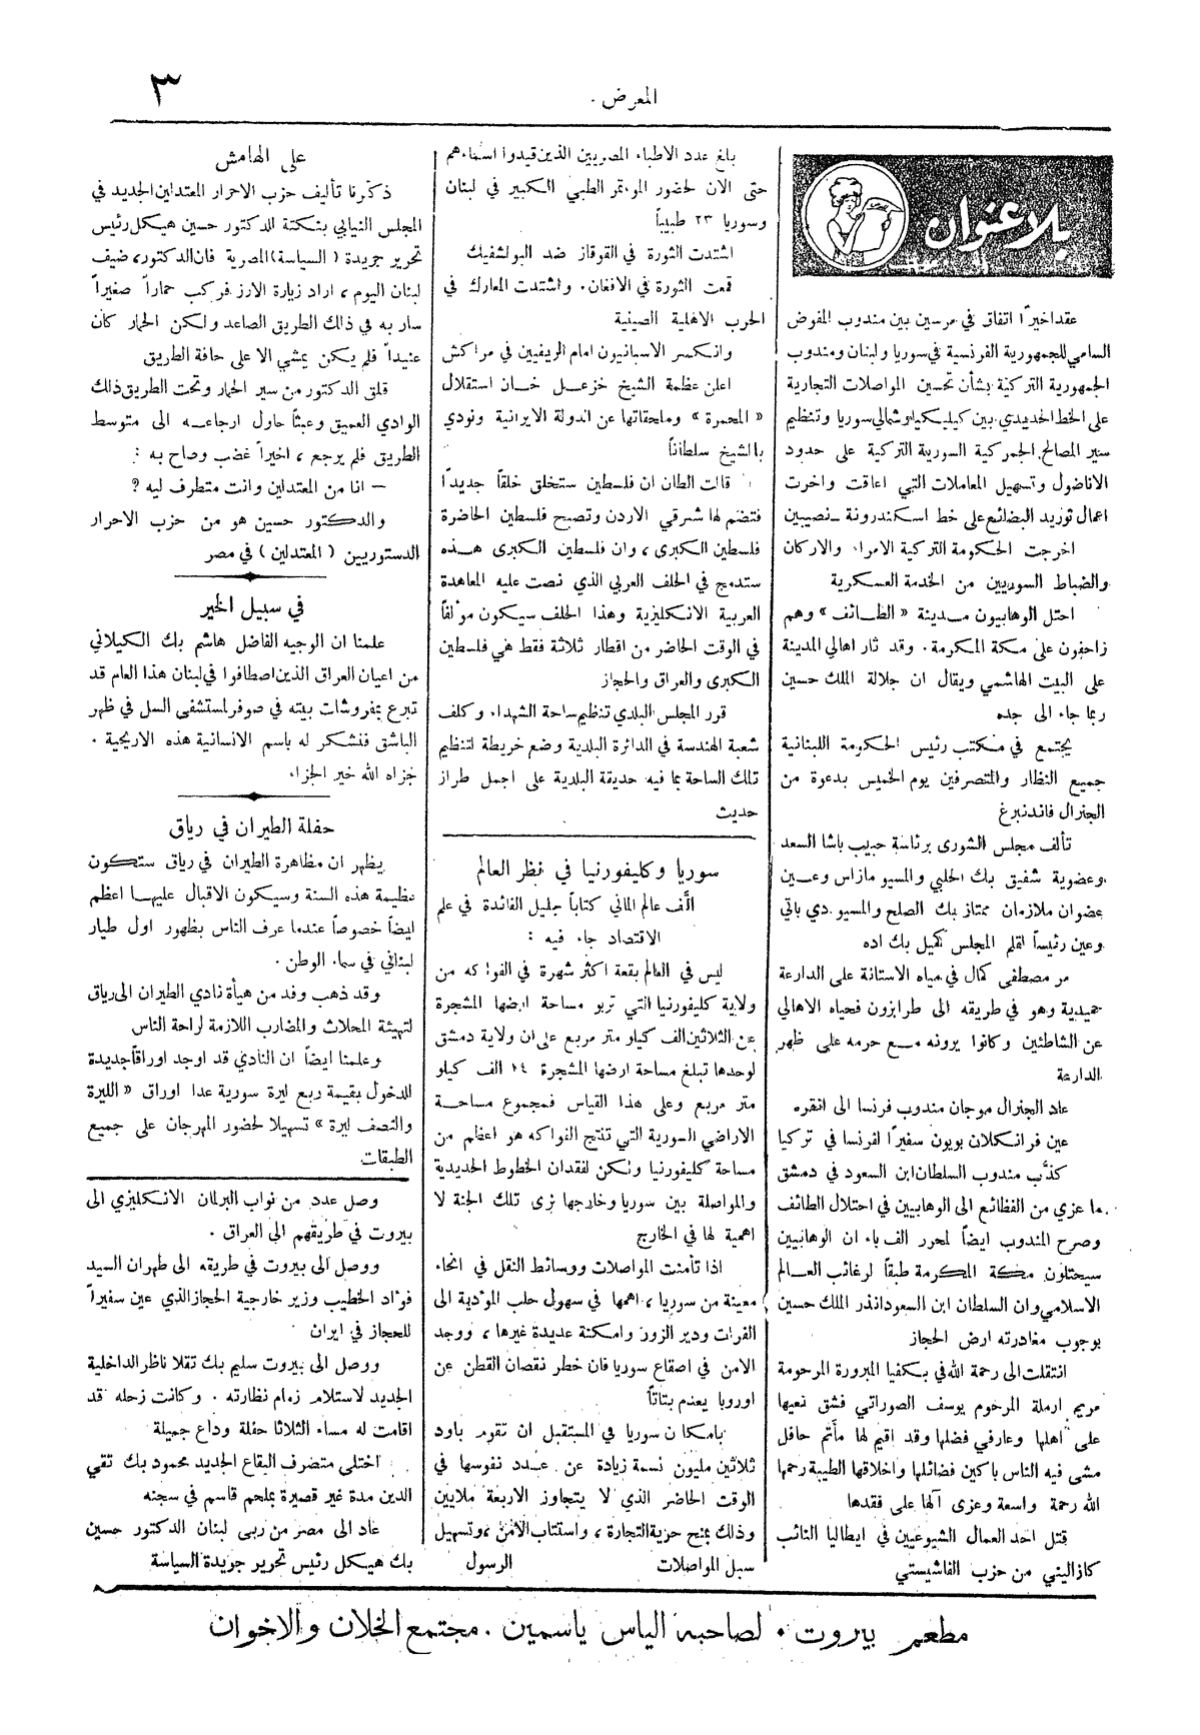 المعرض .
٣
بلا عنوان
عقد اخيراً اتفاق في مرسين بين مندوب المفوض
السامي للجمهورية الفرنسية في سوريا ولبنان ومندوب
الجمهورية التركية بشأن تحسين المواصلات التجارية
على الخط الحديدي بين كيليكيا وشمالي سوريا وتنظيم
سير المصالح الجمركية السورية التركية على حدود
الاناضول وتسهيل المعاملات التي اعاقت واخرت
اعمال توريد البضائع على خط اسكندرونة ـ نصيبين
اخرجت الحكومة التركية الامراء والاركان
والضباط السوريين من الخدمة العسكرية
احتل الوهابيون مدينة « الطائف » وهم
زاحفون على مكة المكرمة . وقد ثار اهالي المدينة
على البيت الهاشمي ويقال ان جلالة الملك حسين
ربما جاء الى جده
يجتمع في مكتب رئيس الحكومة اللبنانية
جميع النظار والمتصرفين يوم الخميس بدعوة من
الجنرال فاندنبرغ
تألف مجلس الشورى برئاسة حبيب باشا السعد
وعضوية شفيق بك الحلبي والمسيو مازاس وعين
عضوان ملازمان ممتاز بك الصلح والمسيو دي باتي
وعين رئيساً لقلم المجلس كميل بك اده
مر مصطفى كمال في مياه الاستانة على الدارعة
حميدية وهو في طريقه الى طرابزون فحياه الاهالي
عن الشاطئين وكانوا يرونه مع حرمه على ظهر
الدارعة
عاد الجنرال موجان مندوب فرنسا الى انقره
عين فرانكلان بويون سفيراً لفرنسا في تركيا
كذّب مندوب السلطان ابن السعود في دمشق
ما عزي من الفظائع الى الوهابيين في احتلال الطائف
وصرح المندوب ايضاً لمحرر الف باء ان الوهابيين
سيحتلون مكة المكرمة طبقاً لرغائب العالم
الاسلامي وان السلطان ابن السعود انذر الملك حسين
بوجوب مغادرته ارض الحجاز
انتقلت الى رحمة الله في بكفيا المبرورة المرحومة
مريم ارملة المرحوم يوسف الصوراتي فشق نعيها
على اهلها وعارفي فضلها وقد اقيم لها مأتم حافل
مشى فيه الناس باكين فضائلها واخلاقها الطيبة رحمها
الله رحمة واسعة وعزى آلها على فقدها
قتل احد العمال الشيوعيين في ايطاليا النائب
كازاليني من حزب الفاشيستي
بلغ عدد الاطباء المصريين الذين قيدوا اسماءهم
حتى الان لحضور المؤتمر الطبي الكبير في لبنان
وسوريا ٢٣ طبيباً
اشتدت الثورة في القوقاز ضد البولشفيك
قمعت الثورة في الافغان . واشتدت المعارك في
الحرب الاهلية الصينية
وانكسر الاسبانيون امام الريفيين في مراكش
اعلن عظمة الشيخ خزعل خان استقلال
« المحمرة » وملحقاتها عن الدولة الايرانية ونودي
بالشيخ سلطاناً
قالت الطان ان فلسطين ستخلق خلقاً جديداً
فتنضم لها شرقي الاردن وتصبح فلسطين الحاضرة
فلسطين الكبرى ، وان فلسطين الكبرى هذه
ستدمج في الحلف العربي الذي نصت عليه المعاهدة
العربية الانكليزية وهذا الحلف سيكون مؤلفاً
في الوقت الحاضر من اقطار ثلاثة فقط هي فلسطين
الكبرى والعراق والحجاز
قرر المجلس البلدي تنظيم ساحة الشهداء وكلف
شعبة الهندسة في الدائرة البلدية وضع خريطة لتنظيم
تلك الساحة بما فيه حديقة البلدية على اجمل طراز
حديث
سوريا وكليفورنيا في نظر العالم
الّف عالم الماني كتاباً جليل الفائدة في علم
الاقتصاد جاء فيه :
ليس في العالم بقعة اكثر شهرة في الفواكه من
ولاية كليفورنيا التي تربو مساحة ارضها المشجرة
عن الثلاثين الف كيلو متر مربع على ان ولاية دمشق
لوحدها تبلغ مساحة ارضها المشجرة ٢٤ الف كيلو
متر مربع وعلى هذا القياس فمجموع مساحة
الاراضي السورية التي تنتج الفواكه هو اعظم من
مساحة كليفورنيا ولكن لفقدان الخطوط الحديدية
والمواصلة بين سوريا وخارجها نرى تلك الجنة لا
اهمية لها في الخارج
اذا تأمنت المواصلات ووسائط النقل في انحاء
معينة من سوريا ، اهمها في سهول حلب المؤدية الى
الفرات ودير الزور وامكنة عديدة غيرها ، ووجد
الامن في اصقاع سوريا فان خطر نقصان القطن عن
اوروبا يعدم بتاتاً
بامكان سوريا في المستقبل ان تقوم باود
ثلاثين مليون نسمة زيادة عن عدد نفوسها في
الوقت الحاضر الذي لا يتجاوز الاربعة ملايين
وذلك بمنح حرية التجارة ، واستتاب الأمن ، وتسهيل
سبل المواصلات الرسول
على الهامش
ذكّرنا تأليف حزب الاحرار المعتدلين الجديد في
المجلس النيابي بنكتة للدكتور حسين هيكل رئيس
تحرير جريدة ( السياسة ) المصرية فان الدكتور، ضيف
لبنان اليوم ، اراد زيارة الارز فركب حماراً صغيراً
سار به في ذلك الطريق الصاعد ولكن الحمار كان
عنيداً فلم يكن يمشي الا على حافة الطريق
قلق الدكتور من سير الحمار وتحت الطريق ذلك
الوادي العميق وعبثاً حاول ارجاعه الى متوسط
الطريق فلم يرجع ، اخيراً غضب وصاح به :
— انا من المعتدلين وانت متطرف ليه ؟
والدكتور حسين هو من حزب الاحرار
الدستوريين ( المعتدلين ) في مصر
في سبيل الخير
علمنا ان الوجيه الفاضل هاشم بك الكيلاني
من اعيان العراق الذين اصطافوا في لبنان هذا العام قد
تبرع بمفروشات بيته في صوفر لمستشفى السل في ظهر
الباشق فنشكر له باسم الانسانية هذه الاريحية .
جزاه الله خير الجزاء
حفلة الطيران في رياق
يظهر ان مظاهرة الطيران في رياق ستكون
عظيمة هذه السنة وسيكون الاقبال عليها اعظم
ايضاً خصوصاً عندما عرف الناس بظهور اول طيار
لبناني في سماء الوطن .
وقد ذهب وفد من هيأة نادي الطيران الى رياق
لتهيئة المحلات والمضارب اللازمة لراحة الناس
وعلمنا ايضاً ان النادي قد اوجد اوراقاً جديدة
للدخول بقيمة ربع ليرة سورية عدا اوراق « الليرة
والنصف ليرة » تسهيلا لحضور المهرجان على جميع
الطبقات
وصل عدد من نواب البرلمان الانكليزي الى
بيروت في طريقهم الى العراق .
ووصل الى بيروت في طريقه الى طهران السيد
فؤاد الخطيب وزير خارجية الحجاز الذي عين سفيراً
للحجاز في ايران
ووصل الى بيروت سليم بك تقلا ناظر الداخلية
الجديد لاستلام زمام نظارته . وكانت زحله قد
اقامت له مساء الثلاثا حفلة وداع جميلة
اختلى متصرف البقاع الجديد محمود بك تقي
الدين مدة غير قصيرة بملحم قاسم في سجنه
عاد الى مصر من ربى لبنان الدكتور حسين
بك هيكل رئيس تحرير جريدة السياسة
مطعم بيروت . لصاحبه الياس ياسمين . مجتمع الخلان والاخوان